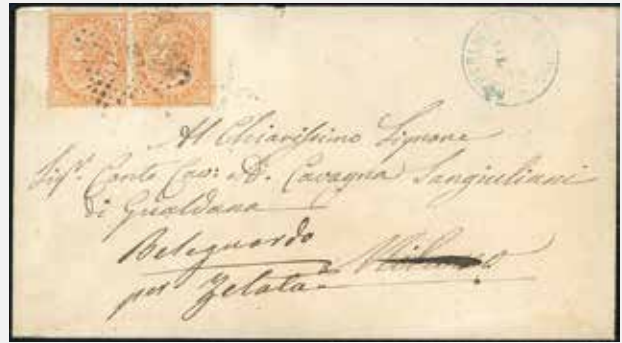 Al Chiarissimo Signore
Sigr. Conte Cav: A. Cavagna Sangiuliani
di Gualdana
Bereguardo
per Zelata Milano